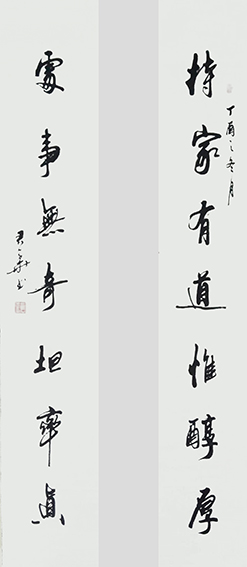 持家有道惟醇厚
丁酉之冬月
處事無奇坦率真
君華書